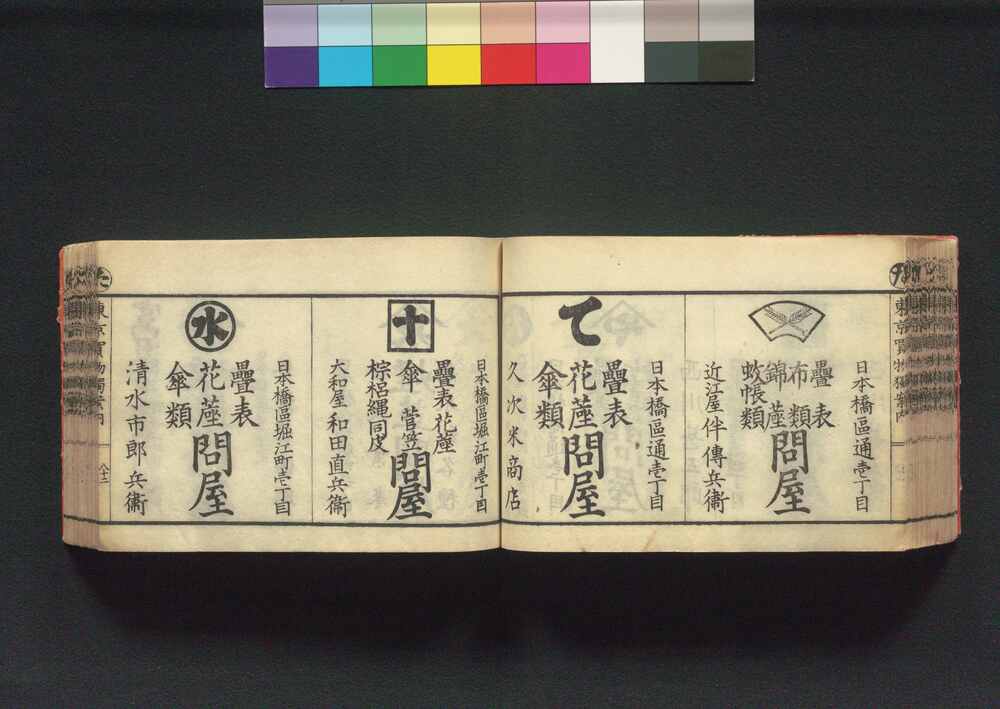 日本橋區通壱丁目
疊表
布類
錦蓙
蚊帳類
問屋
近江屋 伴傳兵衞
て
日本橋區通壱丁目
疊表
花蓙
傘類
問屋
久次米商店
十
日本橋區堀江町壱丁目
疊表花蓙
傘 菅笠
棕梠縄同皮
問屋
大和屋 和田直兵衞
水
日本橋區堀江町壱丁目
疊表
花蓙
傘類
問屋
清水市郎兵衞
た
東京買物獨案内
八十二